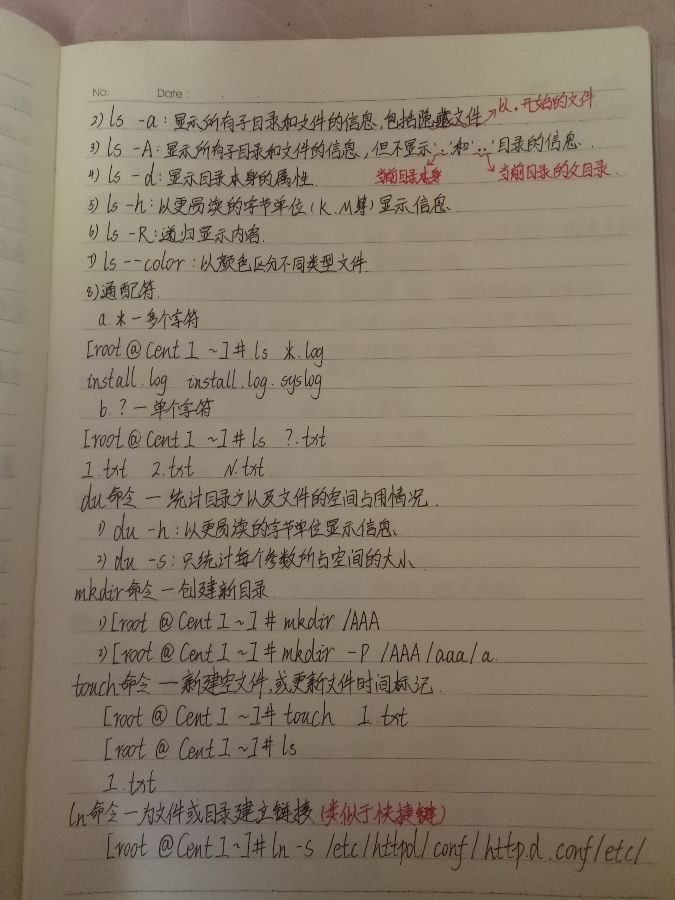 No. Date :
2) ls -a：显示所有子目录和文件的信息，包括隐藏文件 以.开始的文件
3) ls -A：显示所有子目录和文件的信息，但不显示'.'和'..'目录的信息.
4) ls -d：显示目录本身的属性. 当前目录本身 当前目录的父目录.
5) ls -h：以更易读的字节单位(K.M等)显示信息.
6) ls -R：递归显示内容.
7) ls --color：以颜色区分不同类型文件.
8)通配符.
a. * — 多个字符
[root@Cent 1 ~]# ls *.log
install.log install.log.syslog
b. ? — 单个字符
[root@Cent 1 ~]# ls ?.txt
1.txt 2.txt N.txt.
du命令 — 统计目录以及文件的空间占用情况.
1) du -h：以更易读的字节单位显示信息.
2) du -s：只统计每个参数所占空间的大小.
mkdir命令 — 创建新目录.
1) [root @ Cent 1 ~] # mkdir /AAA
2) [root @ Cent 1 ~] # mkdir -P /AAA/aaa/a.
touch命令 — 新建空文件,或更新文件时间标记.
[root @ Cent 1 ~]# touch 1.txt
[root @ Cent 1 ~]# ls
1.txt
ln命令 — 为文件或目录建立链接(类似于快捷键)
[root @Cent 1~]# ln -s /etc/httpd/conf/http.d.conf/etc/